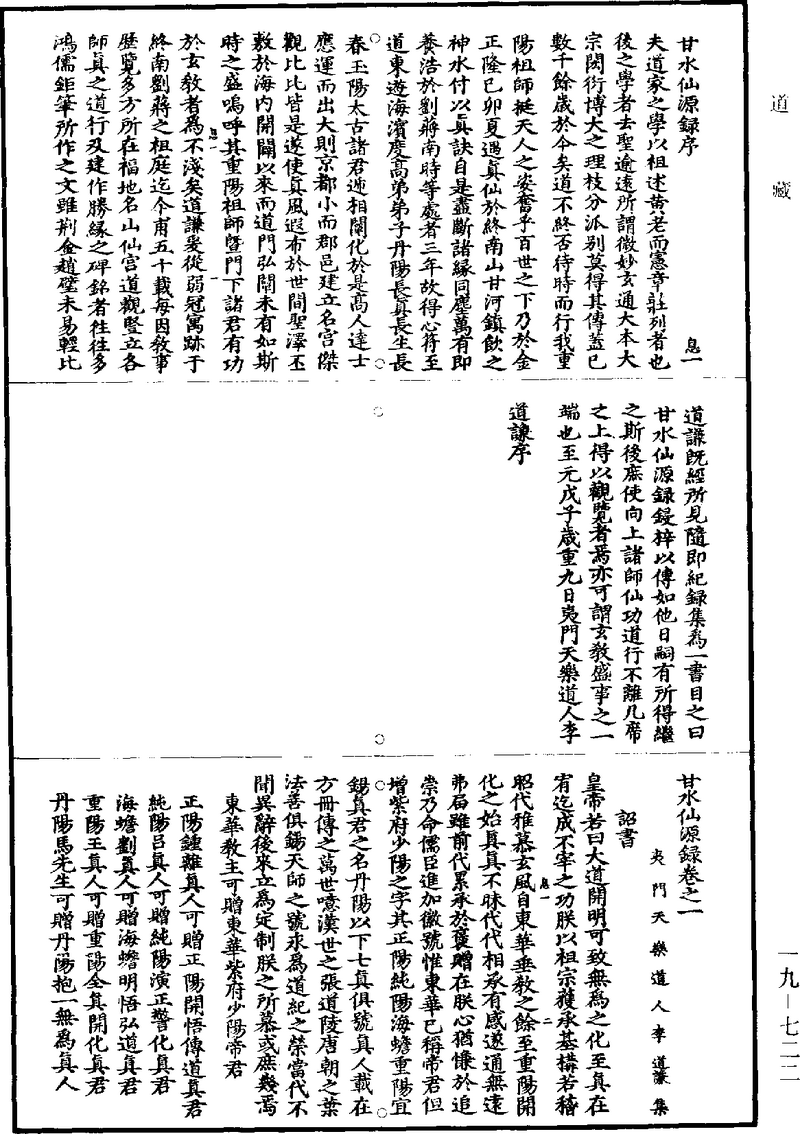 道藏
甘水仙源録序
息一
夫道家之學以祖述黄老而憲章莊列者也
後之學者去聖逾遠所謂微妙玄通大本大
宗閎衍博大之理枝分派别莫得其傳蓋已
數千餘歲於今矣道不終否待時而行我重
陽祖師挺天人之姿奮乎百世之下乃於金
正隆己卯夏遇真仙於終南山甘河鎮飲之
神水付以真訣自是盡斷諸緣同塵萬有即
養浩於劉蔣南時等處者三年故得心符至
道東遊海濱度高弟弟子丹陽長真長生長
春玉陽太古諸君遞相闡化於是高人達士
應運而出大則京都小而郡邑建立名宫傑
觀比比皆是遂使真風遐布於世間聖澤丕
敷於海内開闢以來而道門弘闡未有如斯
時之盛嗚呼其重陽祖師暨門下諸君有功
息一
於玄教者爲不淺矣道謙爰從弱冠寓跡于
終南劉蔣之祖庭迄今甫五十載每因教事
歷覽多方所在福地名山仙宫道觀竪立各
師真之道行及建作勝緣之碑銘者往往多
鴻儒鉅筆所作之文雖荆金趙璧未易輕比
道謙既經所見隨即紀録集爲一書目之曰
甘水仙源録鋟梓以傳如他日嗣有所得繼
之斯後庶使向上諸師仙功道行不離几席
之上得以觀覽者焉亦可謂玄教盛事之一
端也至元戊子歲重九日夷門天樂道人李
道謙序
甘水仙源録卷之一
夷門天樂道人李道謙集
詔書
皇帝若曰大道開明可致無爲之化至真在
宥迄成不宰之功朕以祖宗獲承基構若稽
昭代雅慕玄風自東華垂教之餘至重陽開
息一
二
化之始真真不昧代代相承有感遂通無遠
弗届雖前代累承於褒贈在朕心猶慊於追
崇乃命儒臣進加徽號惟東華已稱帝君但
增紫府少陽之字其正陽純陽海蟾重陽宜
錫真君之名丹陽以下七真俱號真人載在
方册傳之萬世噫漢世之張道陵唐朝之葉
法善俱錫天師之號永爲道紀之榮當代不
聞異辭後來立爲定制朕之所慕或庶幾焉
東華教主可贈東華紫府少陽帝君
正陽鍾離真人可贈正陽開悟傳道真君
純陽吕真人可贈純陽演正警化真君
海蟾劉真人可贈海蟾明悟弘道真君
重陽王真人可贈重陽全真開化真君
丹陽馬先生可贈丹陽抱一無爲真人
一九—七二二